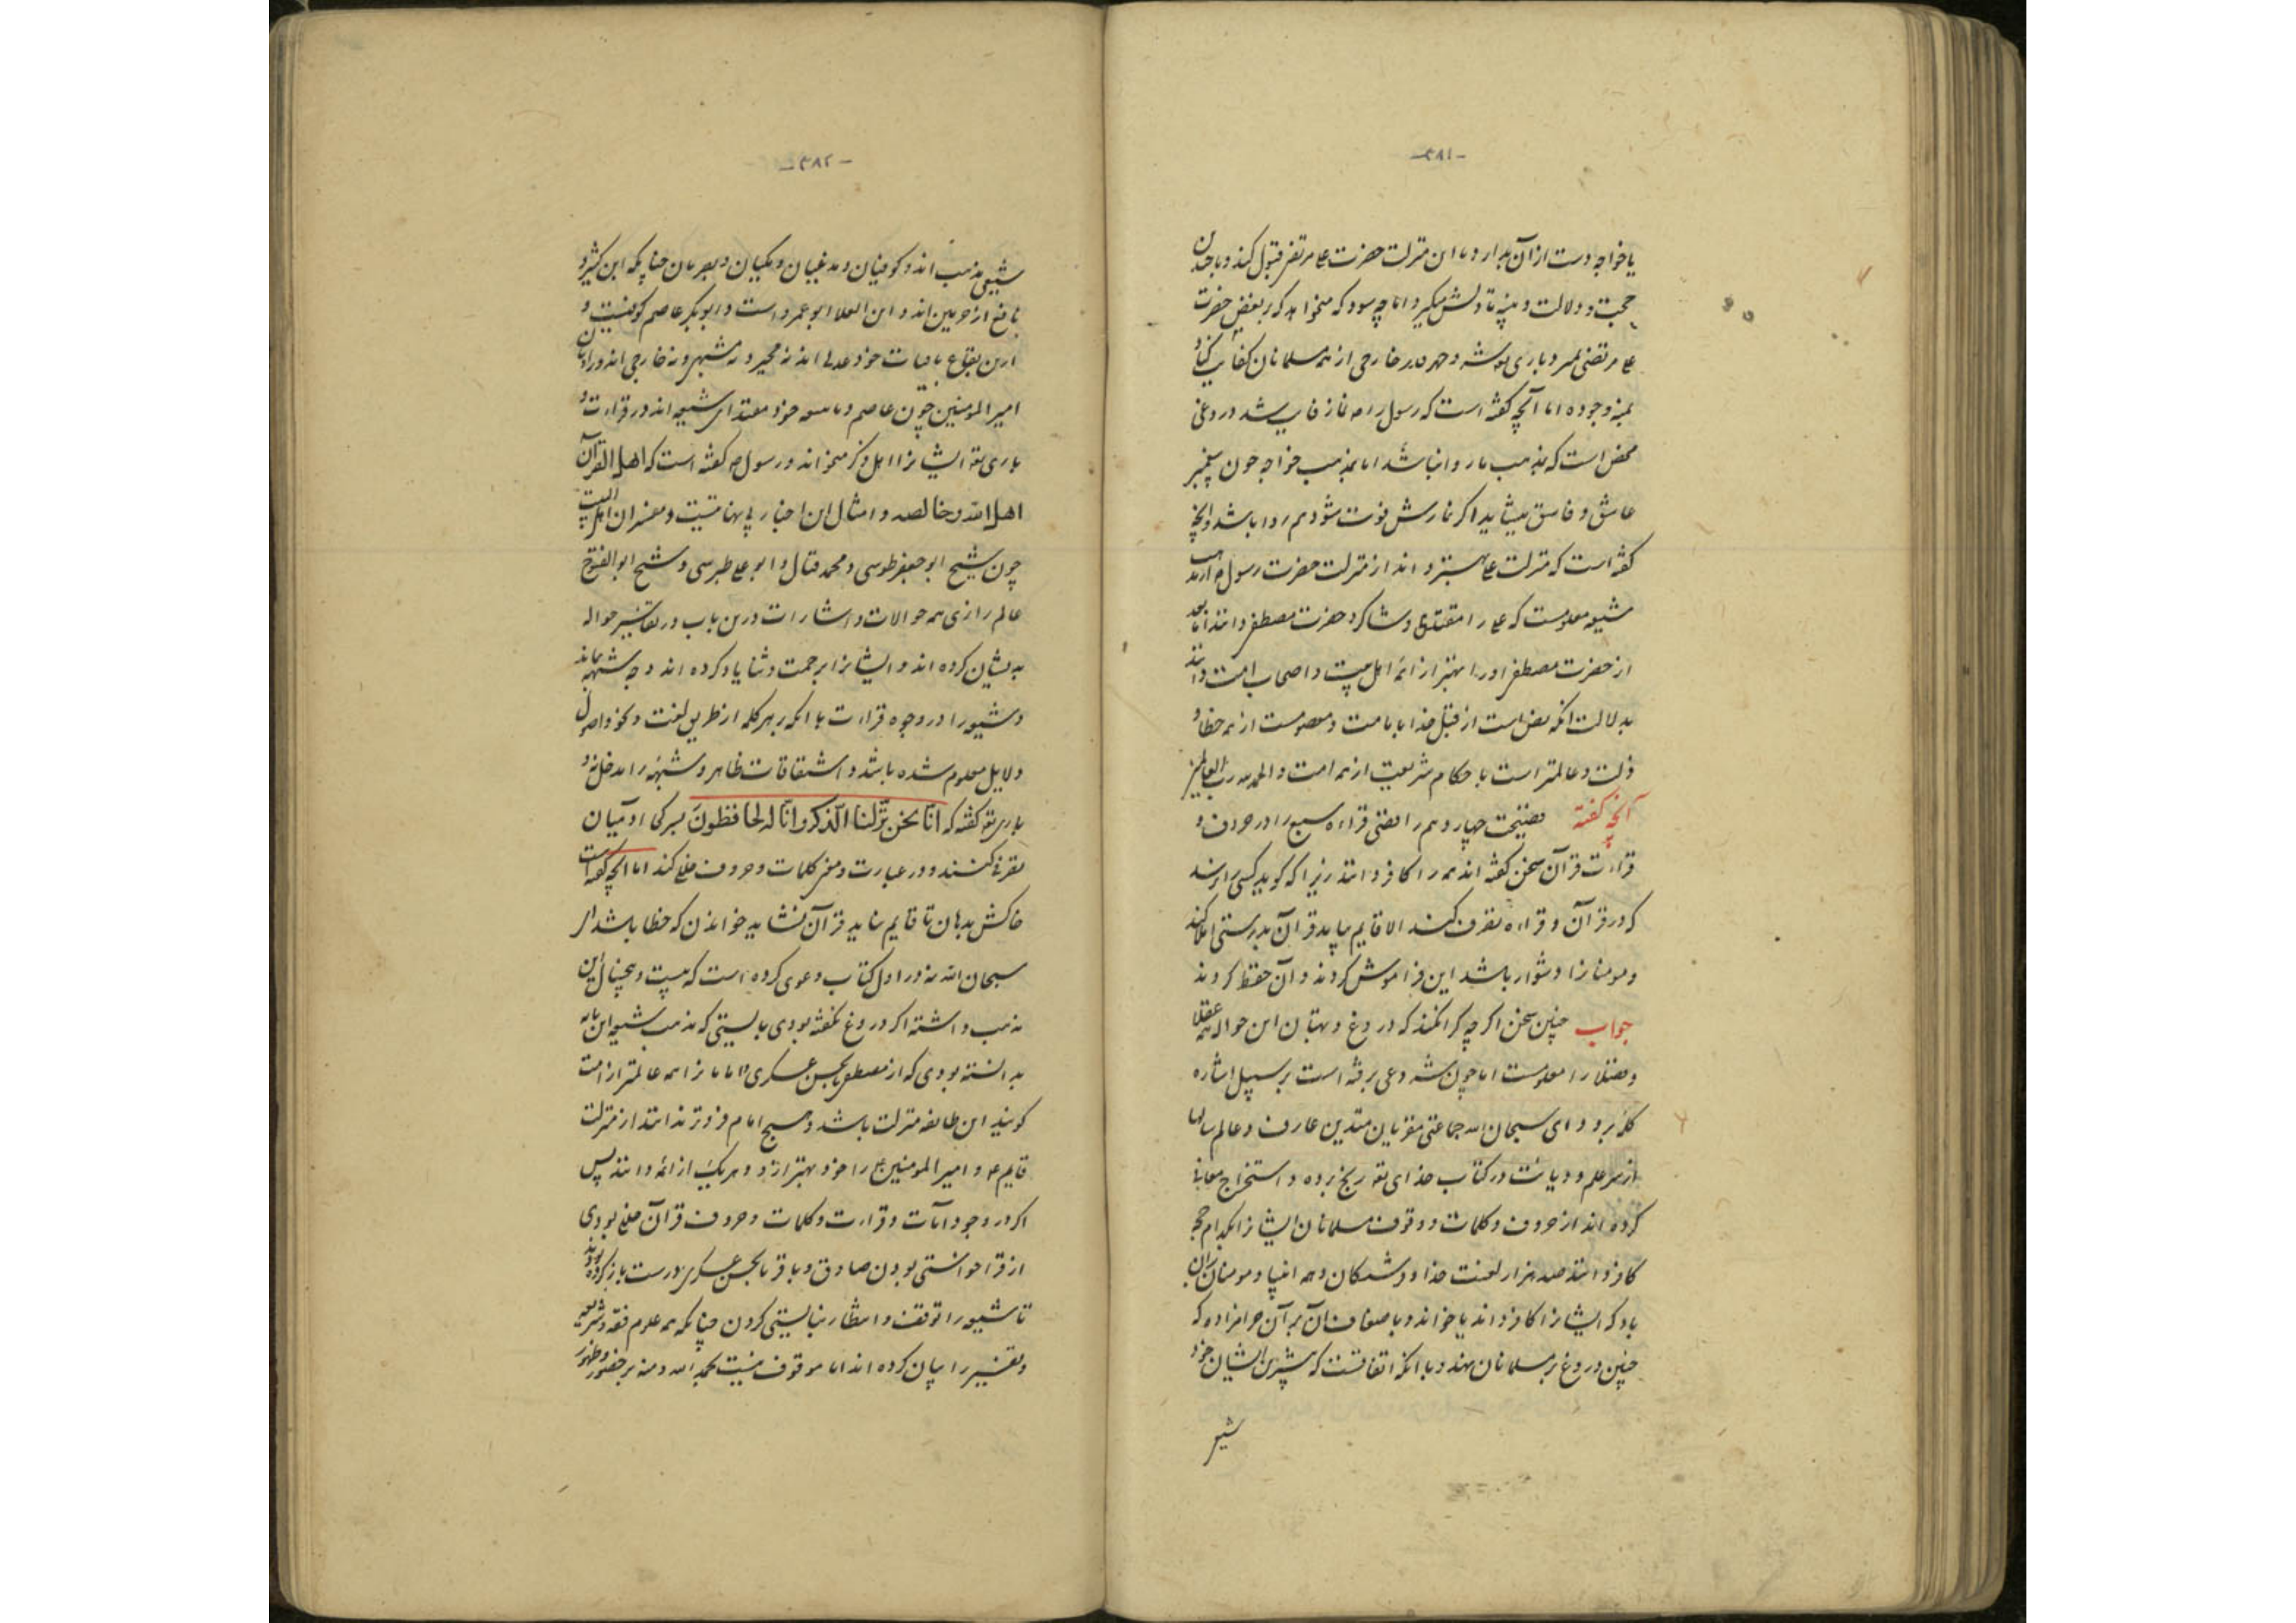 -۳۸۱-
یا خواجه دست از آن بدارد یا این منزلت حضرت علی مرتضی قبول کند و با چندین
حجت و دلالت و بینه تاویلش میکیرد اما چه سود که میخواهد که بر بغض حضرت
علی مرتضی بمیرد
بمنه وجوده اما آنچه کفته است که رسول را نماز فایت شد دروغی
محض است که بمذهب ما روا نباشد اما بمذهب خواجه چون پیغمبر
عاشق و فاسق میشاید اگر نمازش فوت شود هم روا باشد و آنچه
کفته است که منزلت علی بهتر داند از منزلت حضرت رسول
شیعه معلومست که علی را مقتدی و شاکرد حضرت مصطفی دانند اما بعد
از حضرت مصطفی او را بهتر از ائمه اهل بیت و اصحاب و امت دانند
بدلالت آنکه نص است از قبل خدا بامامت و معصومست از همه خطا و
زلت و عالمتر است باحکام شریعت از همه امت والحمد لله رب العالمین
آنچه کفته فضیحت چهاردهم رافضی قراء سبع را در حروف و
قراءت قرآن سخن کفته اند همه را کافر دانند زیرا که کوید کسی را نرسد
که در قرآن و قراءه تصرف کند الا قایم بیاید قرآن بدرستی املا کند
و مومنانرا دشوار باشد این فراموش کردند و آن حفظ کردند
جواب چنین سخن اگرچه کرا نکند که دروغ و بهتان این حواله همه عقلا
و فضلا را معلومست اما چون شروعی برفته است بر سبیل اشاره
کلمه برود ای سبحان الله جماعتی مقریان متدین عارف و عالم سالها
از سر علم و دیانت در کتاب خدای تعالی رنج برده و استخراج معانی
کرده اند از حروف و کلمات و وقوف مسلمانان ایشانرا بکدام حجه
کافر دانند صد هزار لعنت خدا و فرشتکان و همه انبیا و مومنان بر آن
باد که ایشانرا کافر داند یا خواند و باضعاف آن بر آن حرامزاده که
چنین دروغ بر مسلمانان نهند و با آنکه اتفاقست که بیشترین ایشان خود
شیعی
-۳۸۲-
شیعی مذهب اند و کوفیان و مدنیان و مکیان و بصریان چنانکه ابن کثیر و
نافع از حرمین اند و ابن العلا ابو عمرو است و ابوبکر عاصم کوفیست و
ازین بقاع باقیات خود عدلی اند نه مجبر و نه مشبهی و نه خارجی اند
امیر المومنین چون عاصم خود مقتدای شیعه اند در قراءت و
باری تعالی ایشانرا اهل ذکر میخواند و رسول کفته است که اهل القرآن
اهل الله و خالصه و امثال این اخبار بی نهایتیست و مفسران اهل البیت
چون شیخ ابوجعفر طوسی و محمد فتال و ابو علی طبرسی و شیخ ابوالفتوح
عالم رازی همه حوالات و اشارات درین باب در تفاسیر حواله
بدیشان کرده اند و ایشانرا برحمت و ثنا یاد کرده اند و چه شبهه بماند
و شیعه را در وجوه قراءت با آنکه بر هر کلمه از طریق لغت و نحو و اصول
دلایل معلوم شده باشد و اشتقاقات ظاهر و شبهه را مدخل نه و
باری تعالی کفته که انّا نحن نزّلنا الذّکر وانّا له لحافظون آدمیان
تصرف کنند و در عبارت و معنی کلمات و حروف خلل کند اما آنچه کفته است
خاکش بدهان تا قایم نیاید قرآن نشاید خواندن که خطا باشد از
سبحان الله نه در اول کتاب دعوی کرده است که بیست و پنج سال این
مذهب داشته اگر دروغ نکفته بودی بایستی که مذهب شیعه این مایه
بدانسته بودی که از مصطفی تا حسن عسکری امامانرا همه عالمتر از امت
کویند این طایفه منزلت باشد و هیچ امام فروتر ندانند از منزلت
قایم و امیر المومنین را خود بهتر ازو و هر یک از ائمه دانند پس
اکر در وجوه آیات و قراءت و کلمات و حروف قرآن خللی بودی
از قراء خواستی بودن صادق و باقر تا حسن عسکری درست باز کرده بودند
تا شیعه را توقف و انتظار نبایستی کردن چنانکه همه علوم فقه و شریعت
و تفسیر را بیان کرده اند اما موقوف نیست بحمد الله و منه بر حضور و ظهور